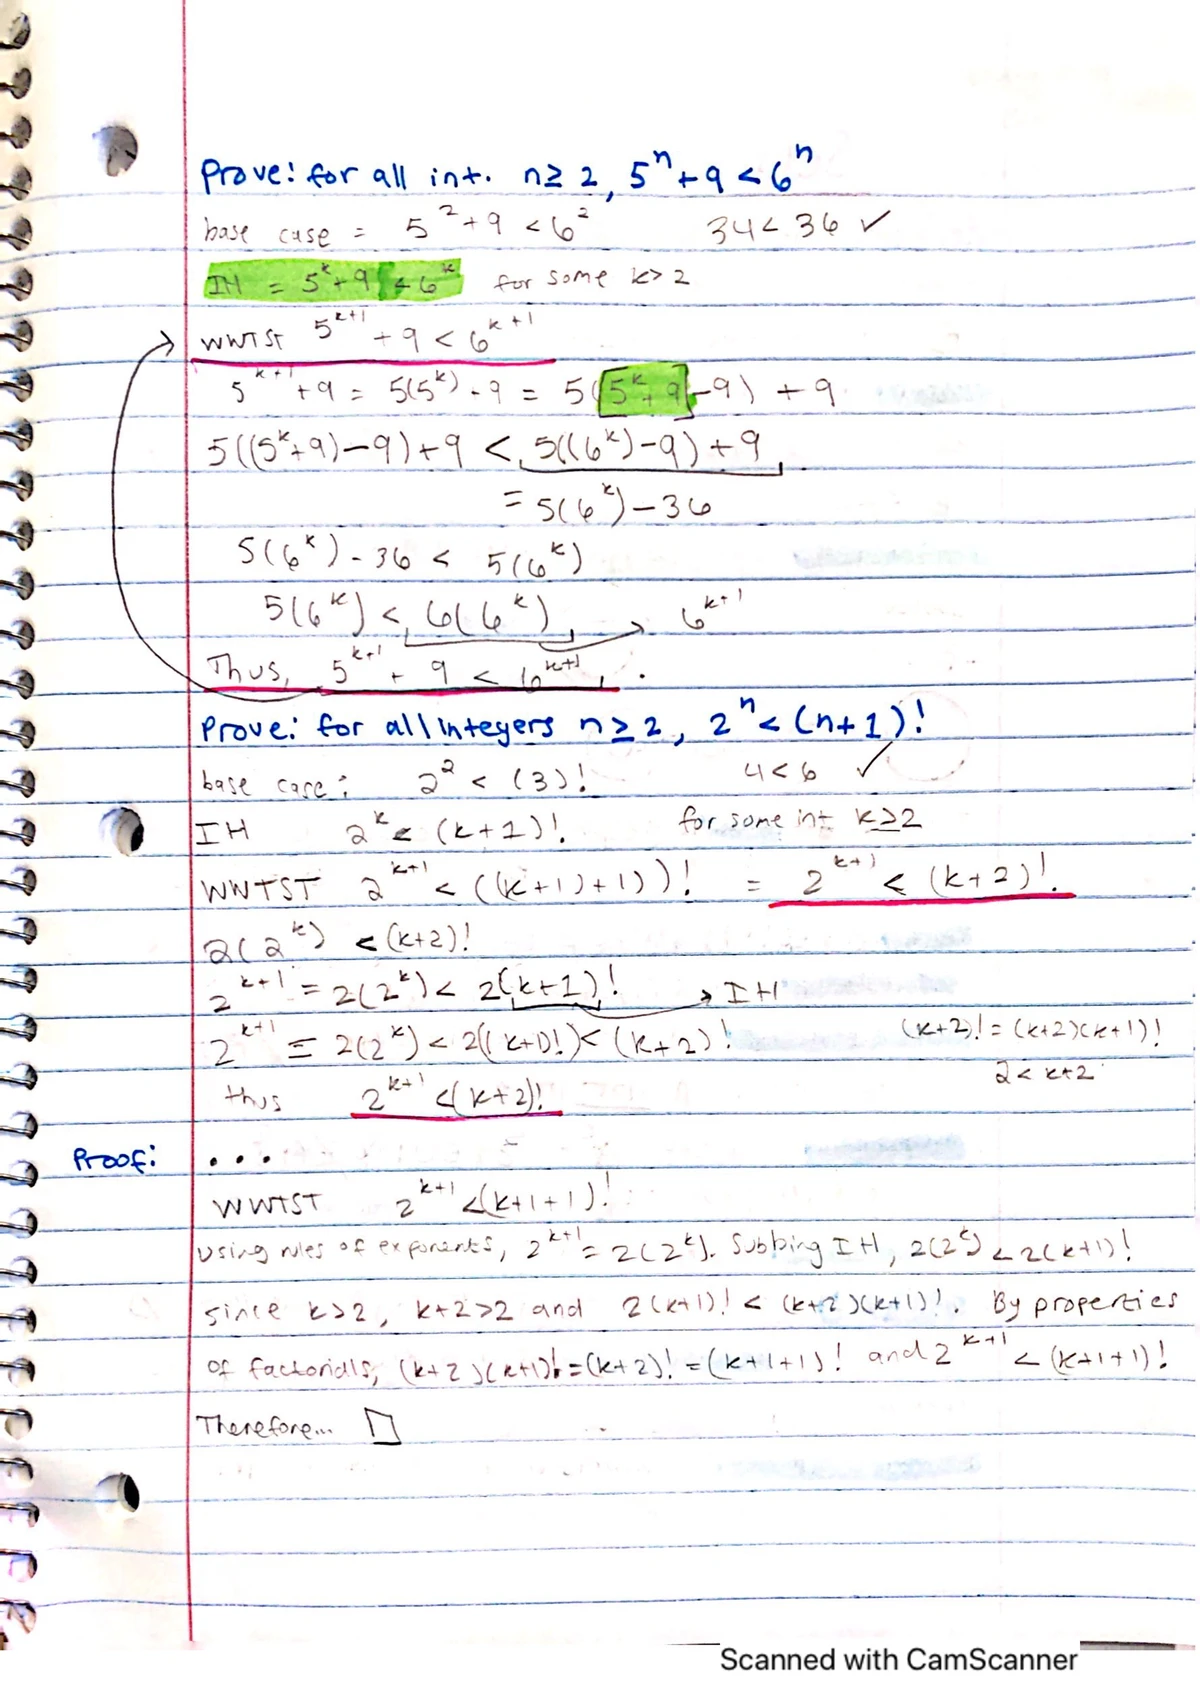 Prove: for all int. n ≥ 2, 5^n + 9 < 6^n
base case = 5^2 + 9 < 6^2 34 < 36 ✓
IH = 5^k + 9 < 6^k for some k > 2
WWTST 5^{k+1} + 9 < 6^{k+1}
5^{k+1} + 9 = 5(5^k) - 9 = 5(5^k + 9 - 9) + 9
5((5^k + 9) - 9) + 9 < 5((6^k) - 9) + 9
= 5(6^k) - 36
5(6^k) - 36 < 5(6^k)
5(6^k) < 6(6^k) → 6^{k+1}
Thus, 5^{k+1} + 9 < 6^{k+1}.
Prove: for all integers n ≥ 2, 2^n < (n+1)!
base case: 2^2 < (3)! 4 < 6 ✓
IH 2^k < (k+1)! for some int k ≥ 2
WWTST 2^{k+1} < ((k+1)+1))! = 2^{k+1} < (k+2)!
2(2^k) < (k+2)!
2^{k+1} = 2(2^k) < 2(k+1)! → IH
2^{k+1} = 2(2^k) < 2((k+1)!) < (k+2)! (k+2)! = (k+2)(k+1)!
2 < k+2
thus 2^{k+1} < (k+2)!
Proof: ...
WWTST 2^{k+1} < (k+1+1)!
Using rules of exponents, 2^{k+1} = 2(2^k). Subbing IH, 2(2^k) < 2(k+1)!
since k > 2, k+2 > 2 and 2(k+1)! < (k+2)(k+1)!. By properties
of factorials, (k+2)(k+1)! = (k+2)! = (k+1+1)! and 2^{k+1} < (k+1+1)!
Therefore... □
Scanned with CamScanner